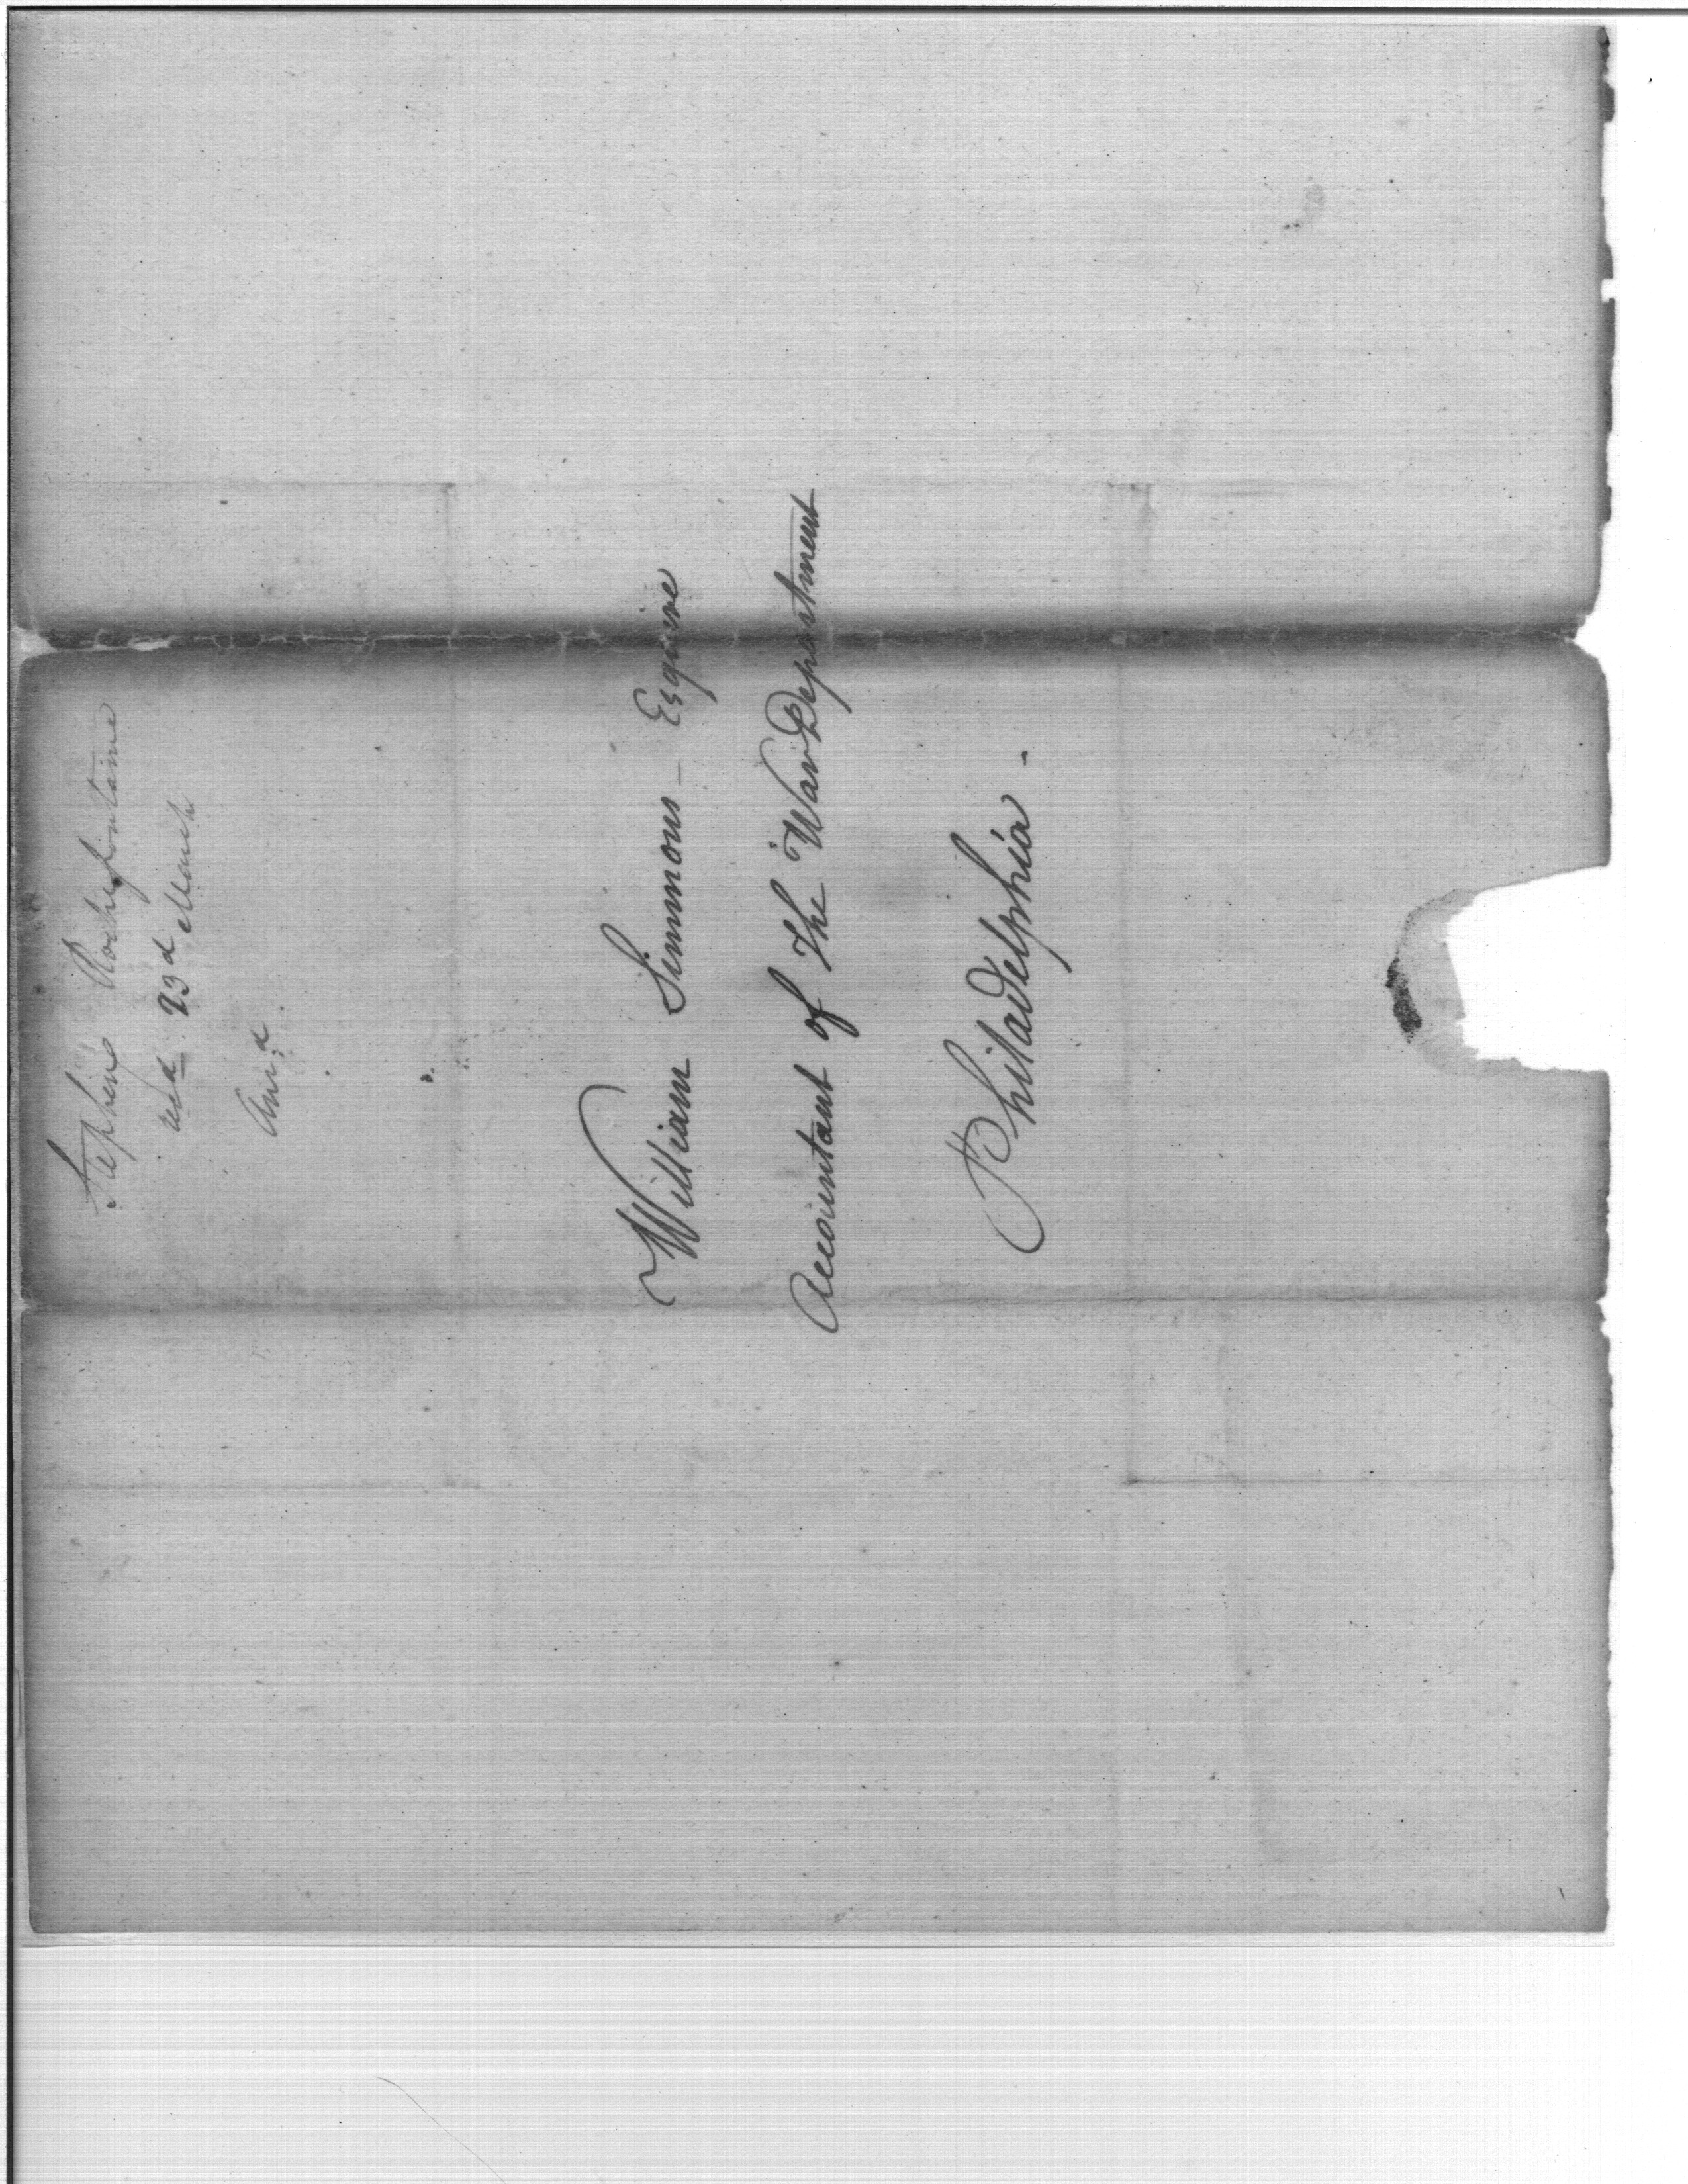 Stephen Rochefontaine
recd. 23d March
Ansd.
William Simmons - Esquire
Accountant of The War Department
Philadelphia -